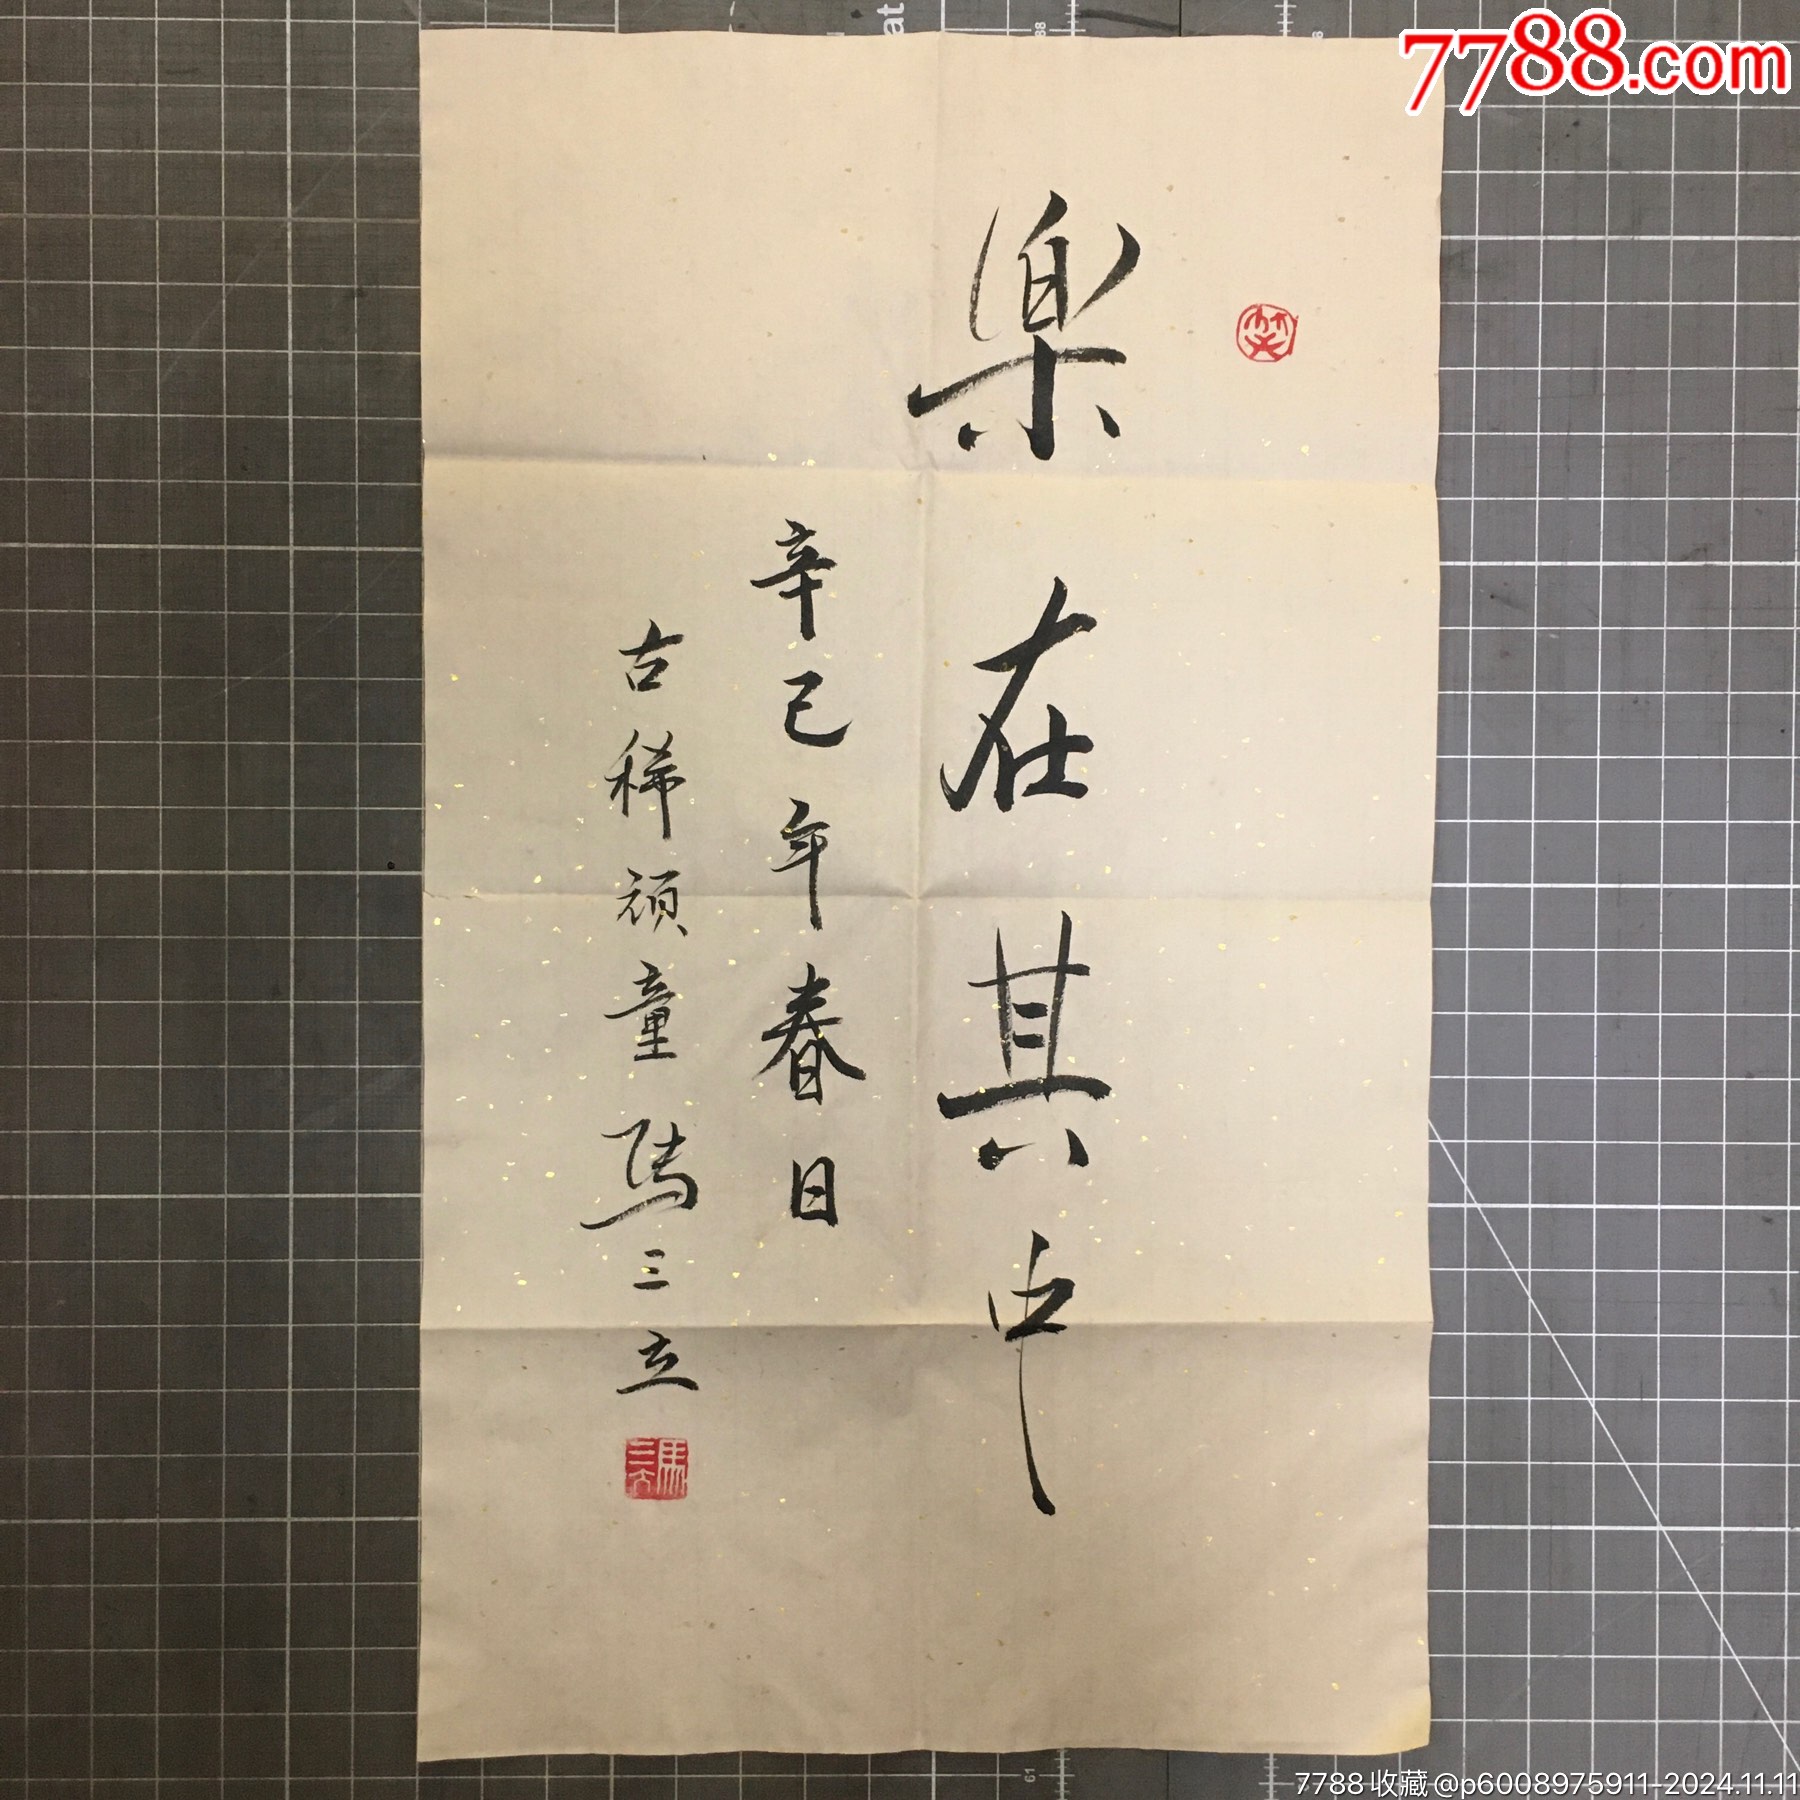 7788.com
笑
樂在其中
辛巳年春日
古稀頑童馬三立
馬三立
7788收藏@p6008975911-2024.11.11